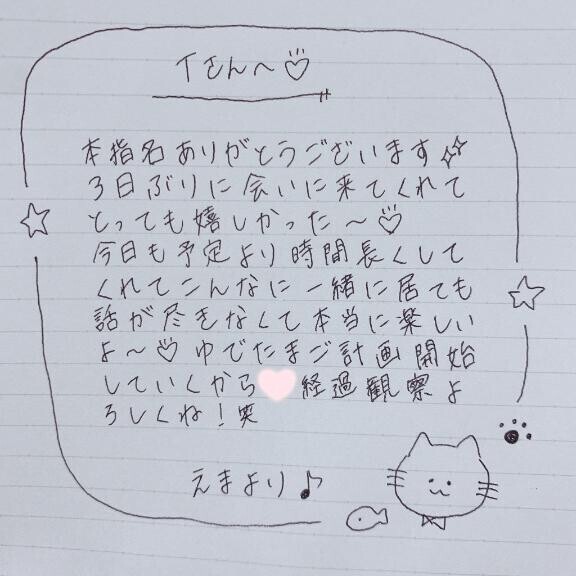 Tさん〜♡
本指名ありがとうございます
3日ぶりに会いに来てくれて
とっても嬉しかった〜♡
今日も予定より時間長くして
くれてこんなに一緒に居ても
話が尽きなくて本当に楽しい
よ〜♡ ゆでたまご計画開始
していくから 経過観察よ
ろしくね！笑
えまより♪